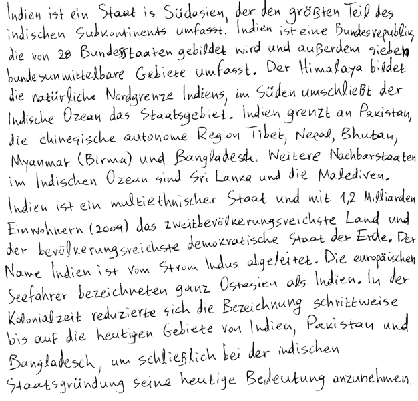 Indien ist ein Staat is Südasien, der den größten Teil des
indischen Subkontinents umfasst. Indien ist eine Bundesrepublik,
die von 28 Bundesstaaten gebildet wird und außerdem sieben
bundesunmittelbare Gebiete umfasst. Der Himalaya bildet
die natürliche Nordgrenze Indiens, im Süden umschließt der
Indische Ozean das Staatsgebiet. Indien grenzt an Pakistan,
die chinesische autonome Region Tibet, Nepal, Bhutan,
Myanmar (Birma) und Bangladesch. Weitere Nachbarstaaten
im Indischen Ozean sind Sri Lanka und die Malediven.
Indien ist ein multiethnischer Staat und mit 1,2 Milliarden
Einwohnern (2009) das zweitbevölkerungsreichste Land und
der bevölkerungsreichste demokratische Staat der Erde. Der
Name Indien ist vom Strom Indus abgeleitet. Die europäischen
Seefahrer bezeichneten ganz Ostasien als Indien. In der
Kolonialzeit reduzierte sich die Bezeichnung schrittweise
bis auf die heutigen Gebiete von Indien, Pakistan und
Bangladesch, um schließlich bei der indischen
Staatsgründung seine heutige Bedeutung anzunehmen